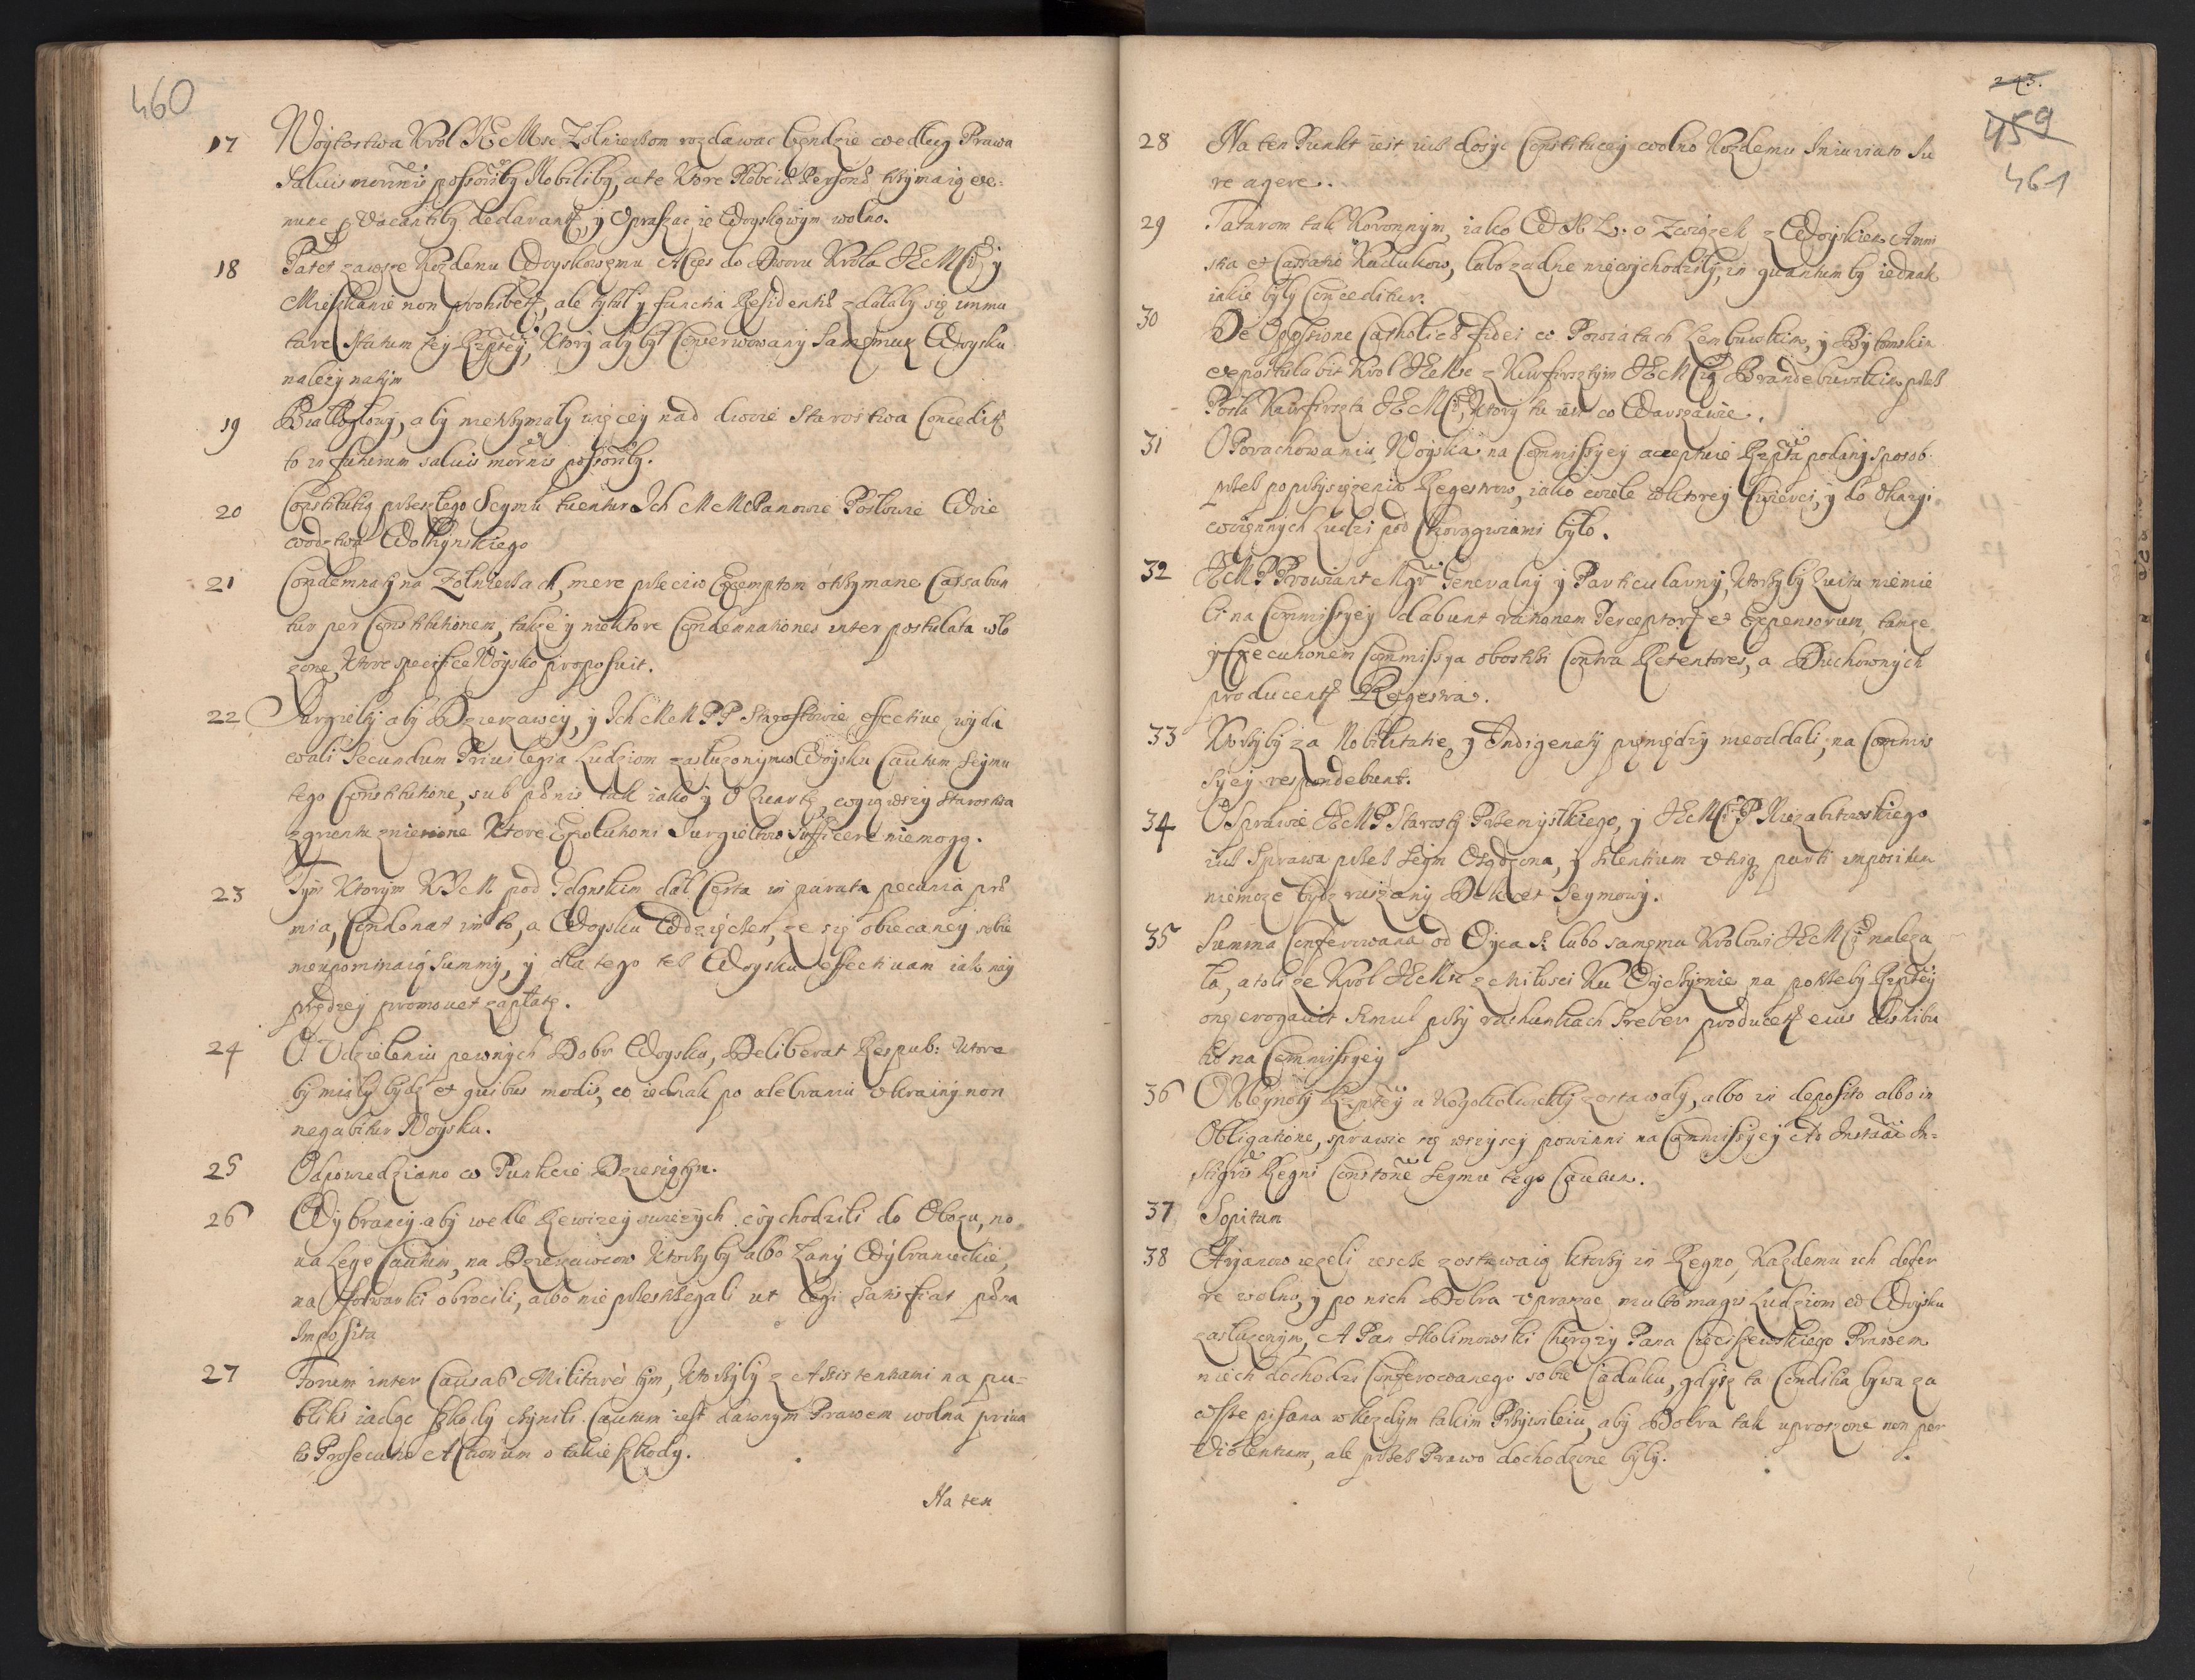 460
17 Woytostwa Krol JEMsc Zołnierzom rozdawac będzie według Prawa
Saluis modernis possoribus Nobilibus, a te ktore Plebeiae Personae trzymaią ex
nunc p Vacantibus declarantur, y Vpraszac ie Woyskowym wolno.
18 Patet zawsze kożdemu Woyskowemu Acces do Dworu Krola JEMsci, y
Mieszkanie non prohibetur, ale tytuł y functia Residentis zdałaby się immu
tare Statum tey Rzptey, ktory aby był Conserwowany Samemuz Woysku
należy natym
19 Białegłowy, aby nietrzymały więcey nad dwie Starostwa Conceditur
to in futurum saluis modernis possoribus.
20 Constitutią przeszłego Seymu tuentur Ich MM Panowie Posłowie Woie
wodztwa Wołhynskiego
21 Condemnaty na Zołnierzach, mere przeciw Exemptom otrzymane Cassabun
tur per Constitutionem, także y niektore Condemnationes inter postulata wło
żone, ktore specifice Woysko proposuit.
22 Jurgielty aby Dzierzawcy, y Ich MM PP Starostowie effective wyda
wali Secundum Priuilegia Ludziom zasłuzonym w Woysku Cautum Seymu
tego Constitutione, sub paenis tak iako y o Kwartę, wyiąwszy Starostwa
zgruntu zniesione ktore Exolutioni Jurgieltow Sufficere niemogą.
23 Tym ktorym KJeM pod Gdanskim dał Certa in parata pecunia prae
mia, Condonat im to, a Woysku Wdzięczen, ze się obiecaney sobie
nieupominaią Summy, y dla tego tez Woysku effectiuam iak nay
prędzey promouet zapłatę.
24 O Vdzieleniu pewnych Dobr Woysku, Deliberat Respub: ktore
by miały bydz et quibus modis, co iednak po odebraniu Vkrainy non
negabitur Woysku.
25 Odpowiedziano w Punkcie Dziesiątym.
26 Wybrancy aby wedle Rewizey swieżych wychodzili do Obozu, no
ua Lege Cautum, na Dzierzawcow ktorzyby albo Łany Wybranieckie,
na folwarki obrocili, albo nie przestrzegali ut Legi satis fiat paena
Imposita
27 Forum inter Causas Militares tym, ktorzyby z Assistentiami na pu-
bliki iadąc szkody czynili. Cautum iest dawnym Prawem wolna priua
ta Prosecutio Actionum o takie szkody.
Na ten
243.
459
461
28 Na ten Punkt iest iuż dosyc Constitucyi wolno kożdemu Iniuriato Iu
re agere.
29 Tatarom tak Koronnym, iako W X L. o Związek z Woyskiem Amni
stia et Cassatio Kadukow, lubo zadne niewychodziły, in quantum by iednak
iakie były Conceditur.
30 De Oppssione Catholicae fidei w Powiatach Lemburskim, y Bytomskim
expostulabit Krol JEMsc z Kurfirsztem JEMscią Brandeburskim przez
Posła Kurfirszta JEMsci, ktory tu iest w Warszawie.
31 O Porachowaniu Woyska na Commissyey acceptuie Rzpta podany sposob
przez poprzysięzenie Regestrow, iako wiele w ktorey Cwierci, y do okazyi
woiennych Ludzi pod Chorągwiami było.
32 JEM P Prowiant Mgr Generalny y Particularny, ktorzyby kwitu niemie
li na Commissyey dabunt rationem Perceptorum et Expensorum, tamże
y Executionem Commissya obostrzy Contra Retentores, a Duchownych
producentur Regestra.
33 Ktorzyby za Nobilitatie, y Indigenaty pieniędzy nieoddali, na Commis
syey respondebunt.
34 O Sprawie JEM P Starosty Przemyslkiego, y JEMsci P Niezabitowskiego
iuż Sprawa przez Seym Osądzona, y silentium utriq parti impositum
niemoze bydz ruszany Dekret Seymowy.
35 Summa Conferowana od Oyca S. lubo samemu Krolowi JEMsci należa
ła, a toli że Krol JEMsc z miłosci Ku Oyczyznie na potrzeby Rzptey
onę erogauit simul przy rachunkach Sreber producetur eius distribu
tio na Commissyey
36 O Kleynoty Rzptey u kogokolwiekby zostawały, albo in deposito albo in
Obligatione, sprawic się wszyscy powinni na Commissyey Ad Instantiam In-
stigris Regni Constone Seymu tego Cautum.
37 Sopitum
38 Aryanow iezeli iescze zostawaią ktorzy in Regno, Kazdemu ich defer
re wolno, y po nich Dobra vpraszac multo magis Ludziom w Woysku
zasłuzonym, A Pan Skolimowski Chorąży Pana Prawem
niech dochodzi Conferowanego sobie Caduku, gdysz ta Conditia bywa za
wsze pisana w kozdym takim Przywileiu, aby Dobra tak uproszone non per
Violentiam, ale przez Prawo dochodzone były.